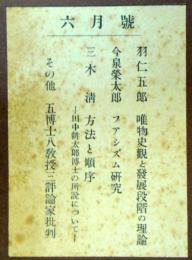 六月號
羽仁五郎 唯物史觀と發展段階の理論
今泉榮太郎 フアシズム研究
三木清 方法と順序
―田中耕太郎博士の所説について―
その他 五博士八敎授三評論家批判